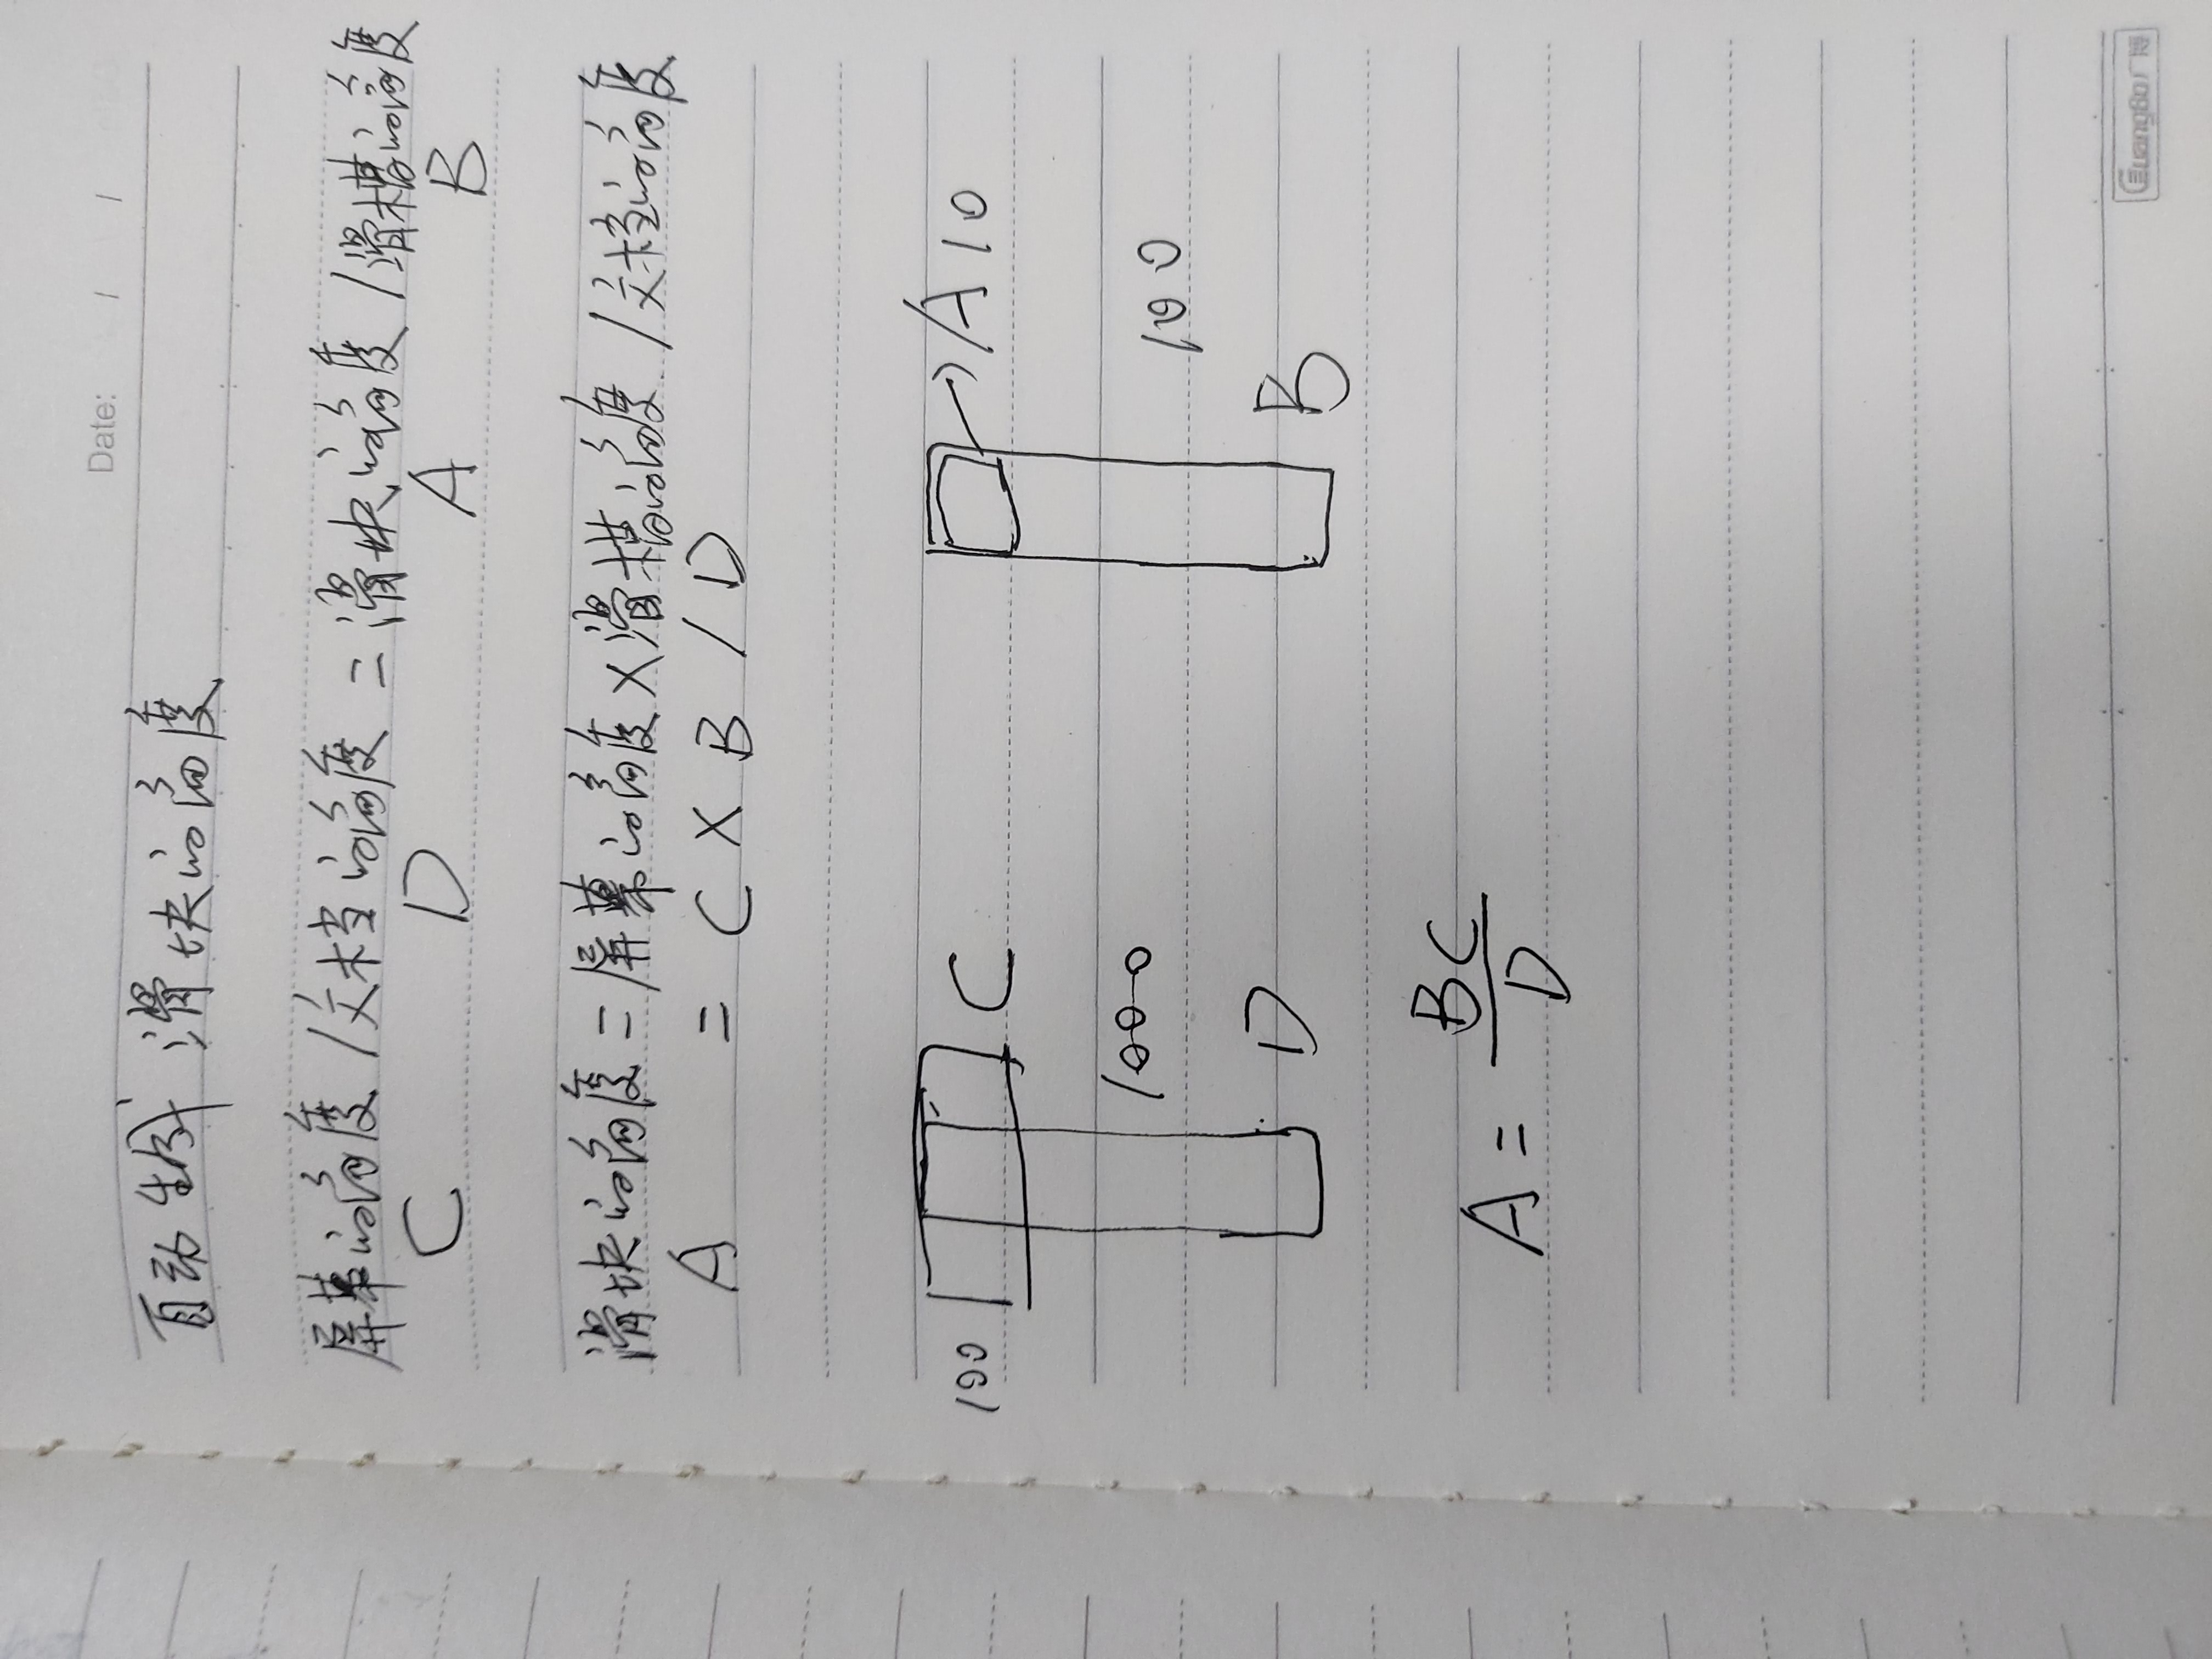 Date: / /
自动生成 滑块的高度
屏幕的高度 / 文档的高度 = 滑块的高度 / 滑槽的高度
C D A B
滑块的高度 = 屏幕的高度 X 滑槽的高度 / 文档的高度
A = C X B / D
100 C A 10
1000 100
D B
A = BC / D
GuangBo广博